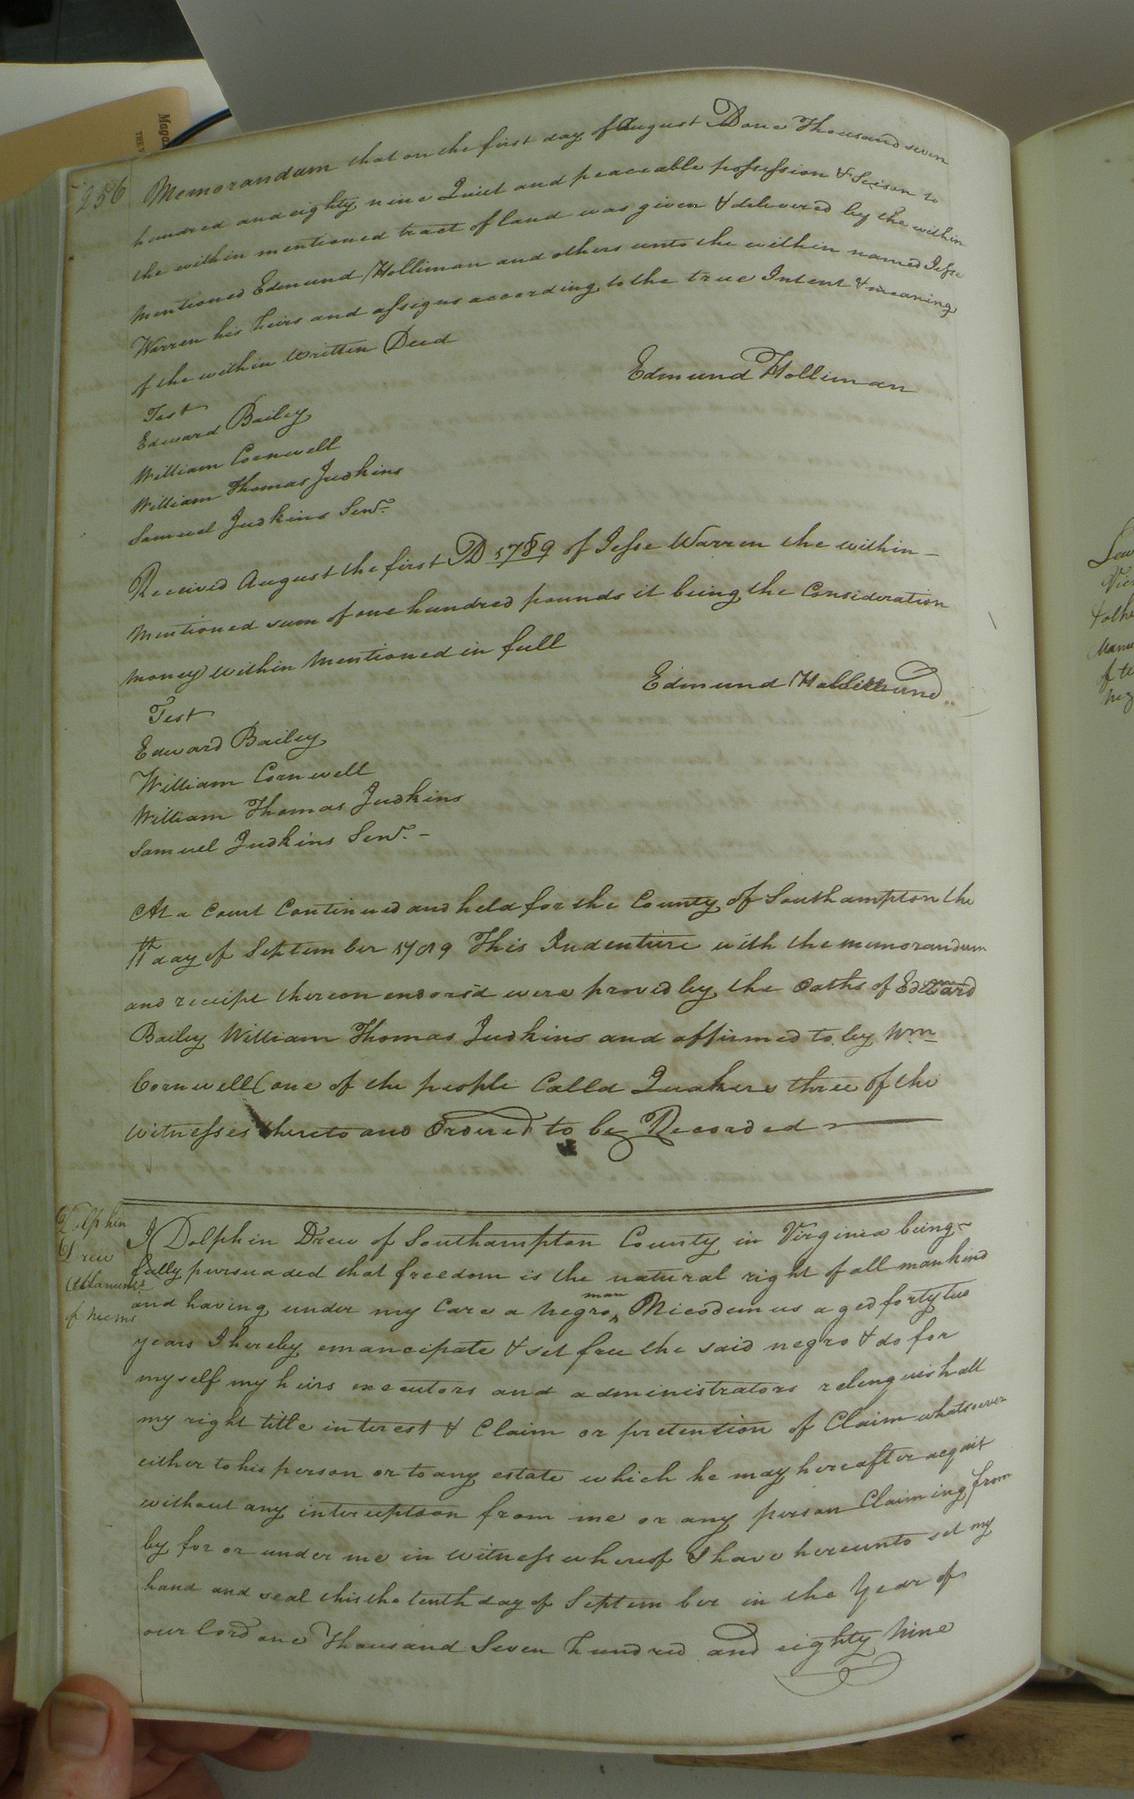 256
Memorandam that on the first day of August AD one Thousand seven
hundred and eighty nine Quiet and peaceable possession & Seison to
the within mentioned tract of land was given & delivered by the within
mentioned Edmund Holliman and others unto the within named Jesse
Warren his heirs and assigns according to the true Intent & meaning
of the within written Deed
Edmund Holliman
Test
Edward Bailey
William Cornwell
William Thomas Judkins
Samuel Judkins Senr.
Received August the first AD 1789 of Jesse Warren the within-
mentioned sum of one hundred pounds it being the Consideration
money within mentioned in full
Edmund Holliman
Test
Edward Bailey
William Cornwell
William Thomas Judkins
Samuel Judkins Senr. -
At a Court Continued and held for the County of Southampton the
11th day of September 1789 This Indenture with the memorandum
and receipt thereon endorsd were proved by the Oaths of Edward
Bailey William Thomas Judkins and affirmed to by Wm
Cornwell (one of the people Calld Quakers three of the
witnesses thereto and Ordered to be Recorded
Dolphin
Drew
of Nicms
I Dolphin Drew of Southampton County in Virginia being
fully persuaded that freedom is the natural right of all mankind
and having under my Care a negro man Nicodemus aged forty two
years I hereby emancipate & set free the said negro & do for
myself my heirs executors and administrators relinquish all
my right title interest & Claim or pretention of Claim whatsoever
either to his person or to any estate which he may hereafter acquit
without any interuption from me or any person Claiming from
by for or under me in witness whereof I have hereunto set my
hand and seal this the tenth day of September in the Year of
our lord one Thousand Seven hundred and eighty Nine